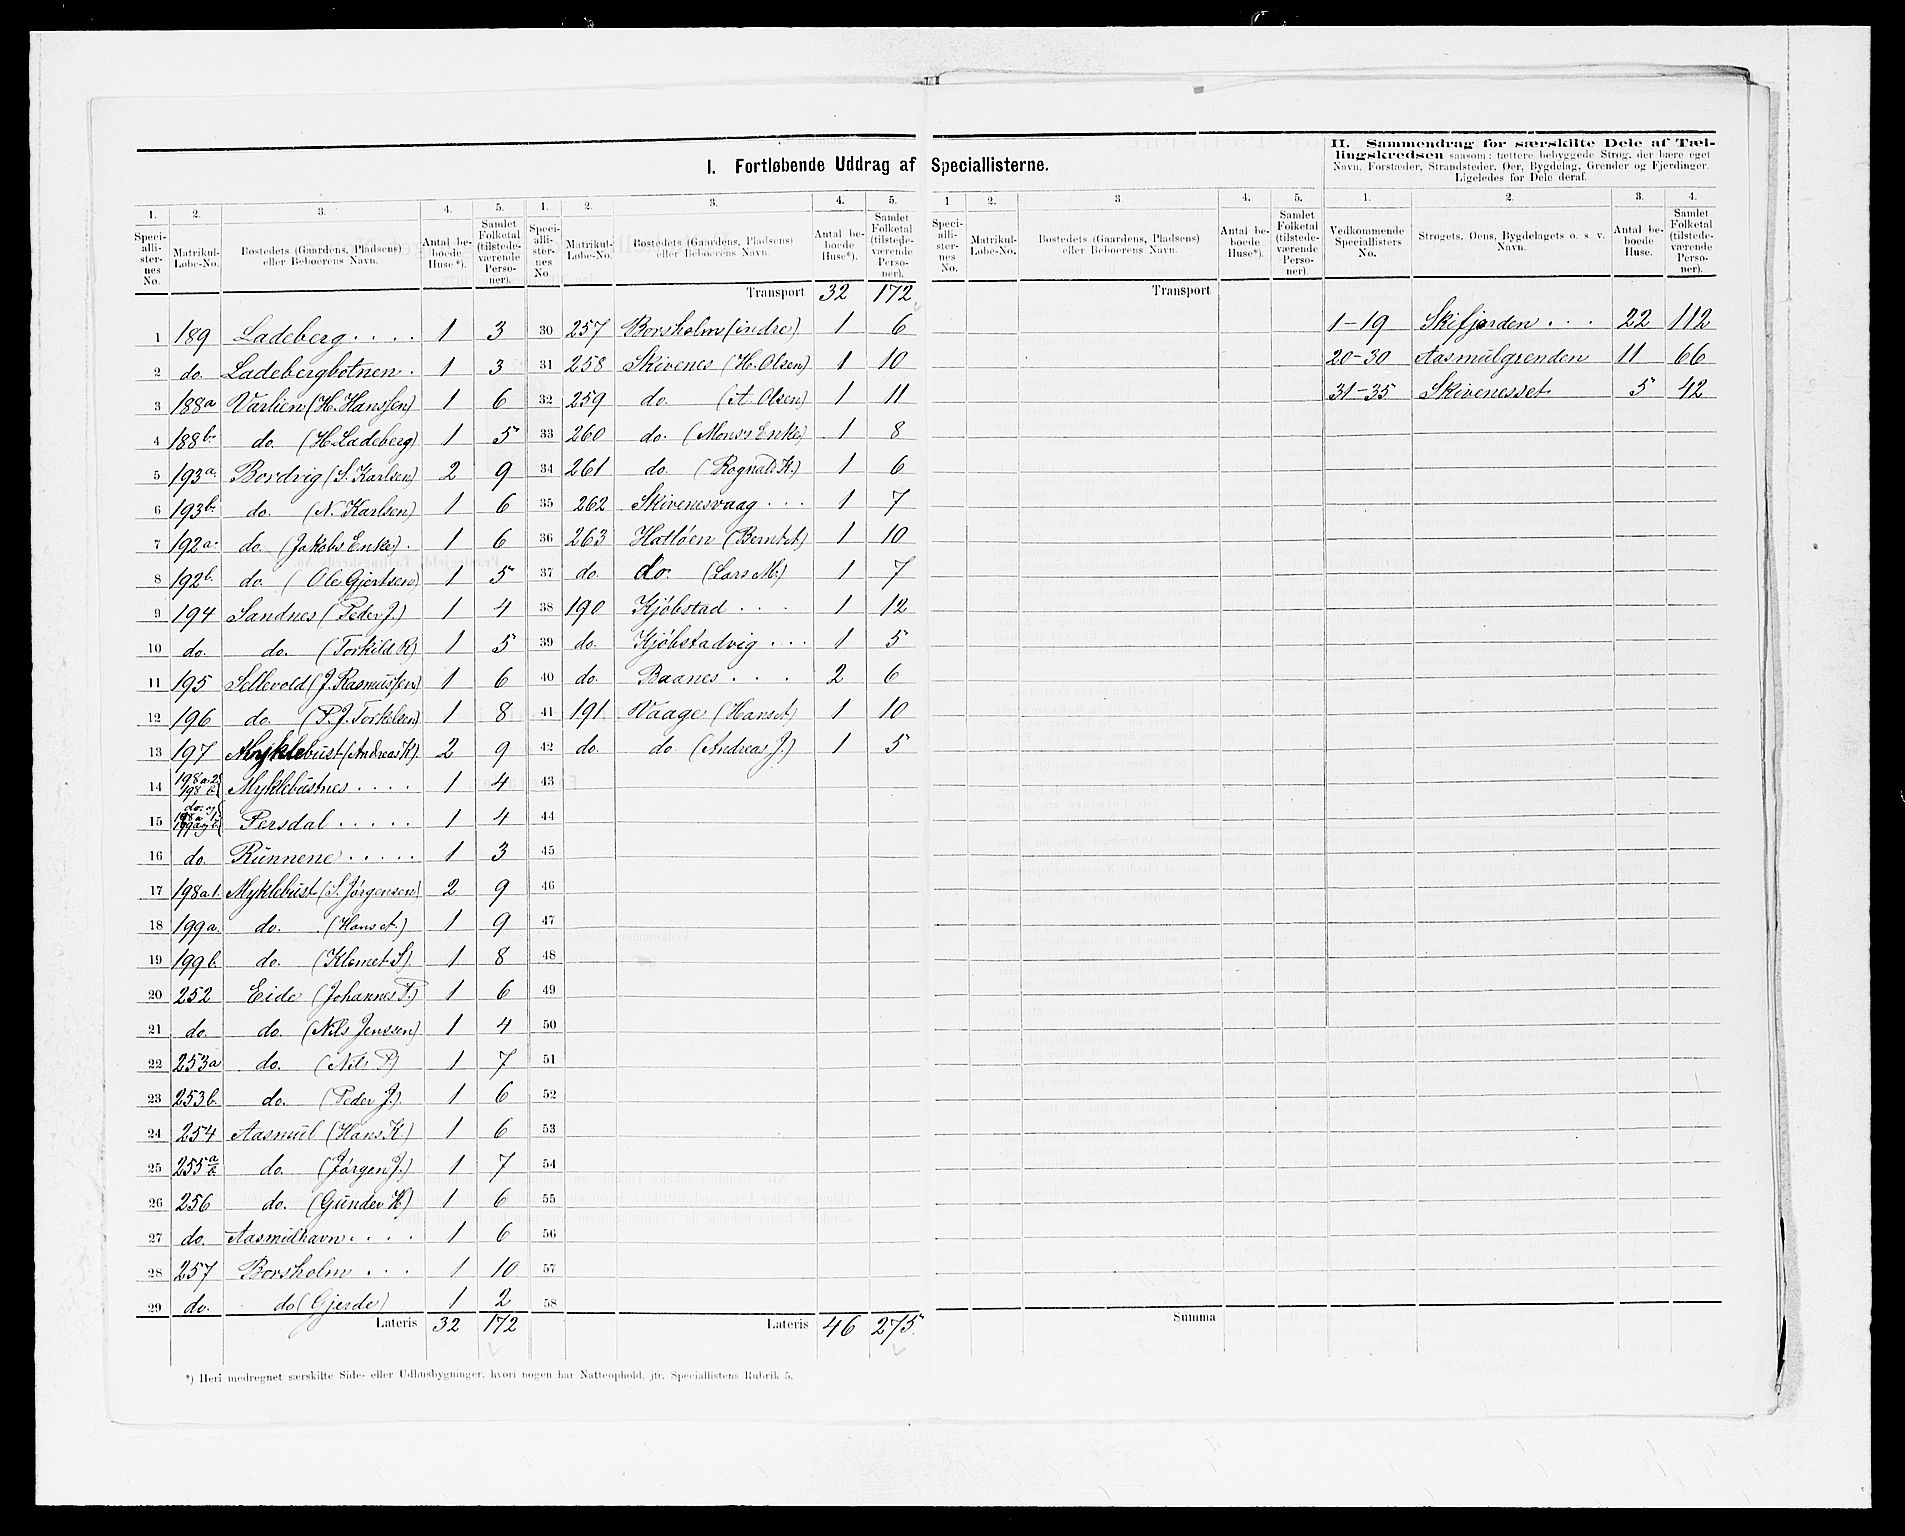 I. Fortløbende Uddrag af Speciallisterne.
II. Sammendrag for særskilte Dele af Tæl-
lingskredsen saasom: tættere bebyggede Strøg, der bære eget
Navn, Forstæder, Strandsteder, Øer, Bygdelag, Grender og Fjerdinger.
Ligeledes for Dele deraf.
1. 2. 3. 4. 5. 1. 2. 3. 4. 5. 1 2. 3 4. 5. 1. 2. 3. 4.
Speci-alli-ster-nes No. Matrikul-Løbe-No. Bostedets (Gaardens, Pladsens) eller Beboerens Navn. Antal be-boede Huse*). Samlet Folketal (tilstede-værende Perso-ner).
Speci-alli-ster-nes No. Matrikul-Løbe-No. Bostedets (Gaardens, Pladsens) eller Beboerens Navn. Antal be-boede Huse*). Samlet Folketal (tilstede-værende Perso-ner).
Speci-alli-ster-nes No. Matrikul-Løbe-No. Bostedets (Gaardens, Pladsens) eller Beboerens Navn. Antal be-boede Huse*). Samlet Folketal (tilstede-værende Perso-ner).
Vedkommende Speciallisters No. Strøgets, Øens, Bygdelagets o. s. v. Navn. Antal be-boede Huse. Samlet Folketal (tilstede-værende Perso-ner).
1 189 Ladeberg . . . . 1 3
2 do. Ladebergbotnen . 1 3
3 188a Varlien (H. Hanssen) 1 6
4 188b. do. (H. Ladeberg) 1 5
5 193a. Bordvig (S. Karlsen) 2 9
6 193b. do. (N. Karlsen) 1 6
7 192a. do. (Jakobs Enke) . 1 6
8 192b. do. (Ole Gjertsen) 1 5
9 194 Sandnes (Peder J.) 1 4
10 do. do. (Torkild R) 1 5
11 195 Settevold (J. Rasmussen) 1 6
12 196 do. (P. J. Torkelsen) 1 8
13 197 Myklebust (Andreas K). 2 9
14 198a.2 198 b. Myklebustnes . . . . 1 4
15 do. og Persdal . . . . . 1 4
16 do. Runnene . . . . . 1 3
17 198a.1. Myklebust (S. Jørgensen) 2 9
18 199a. do. (Hans A.) 1 9
19 199b. do. (Klemet S). 1 8
20 252 Eide (Johannes P.) 1 6
21 do. do. (Nils Jenssen) 1 4
22 253a do. (Nils P) 1 7
23 253b. do. (Peder J.). 1 6
24 254 Aasmul (Hans K) 1 6
25 255a/b do. (Jørgen J.) 1 7
26 256 do. (Gunder K) 1 6
27 do. Aasmulhavn . . . . 1 6
28 257 Borsholm . . . 1 10
29 do. do (Gjerde) 1 2
Lateris 32 172
Transport 32 172
30 257 Borsholm (indre) 1 6
31 258 Skivenes (H. Olsen) 1 10
32 259 do. (A. Olsen) 1 11
33 260 do. (Mons's Enke) 1 8
34 261 do. (Rognald K.) 1 6
35 262 Skivenesvaag . . . 1 7
36 263 Hatløen (Bernt A) 1 10
37 do. do. (Lars M.) 1 7
38 190 Kjøbstad . . . 1 12
39 do. Kjøbstadvig . . . 1 5
40 do. Baanes . . . 2 6
41 191. Vaage (Hans A) 1 10
42 do. do. (Andreas J.) 1 5
43
44
45
46
47
48
49
50
51
52
53
54
55
56
57
58
Lateris 46 275.
Transport
Summa
1-19 Skifjorden . . . 22 112
20-30 Aasmulgrenden 11 66
31-35 Skivenesset 5 42
*) Heri medregnet særskilte Side- eller Udhusbygninger, hvori nogen har Natteophold, jfr. Speciallistens Rubrik 5.